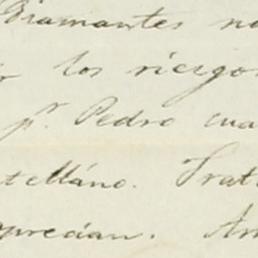 Diamantes no
los riesgo
pr. Pedro cua
tellano. Trat
aprecian. An